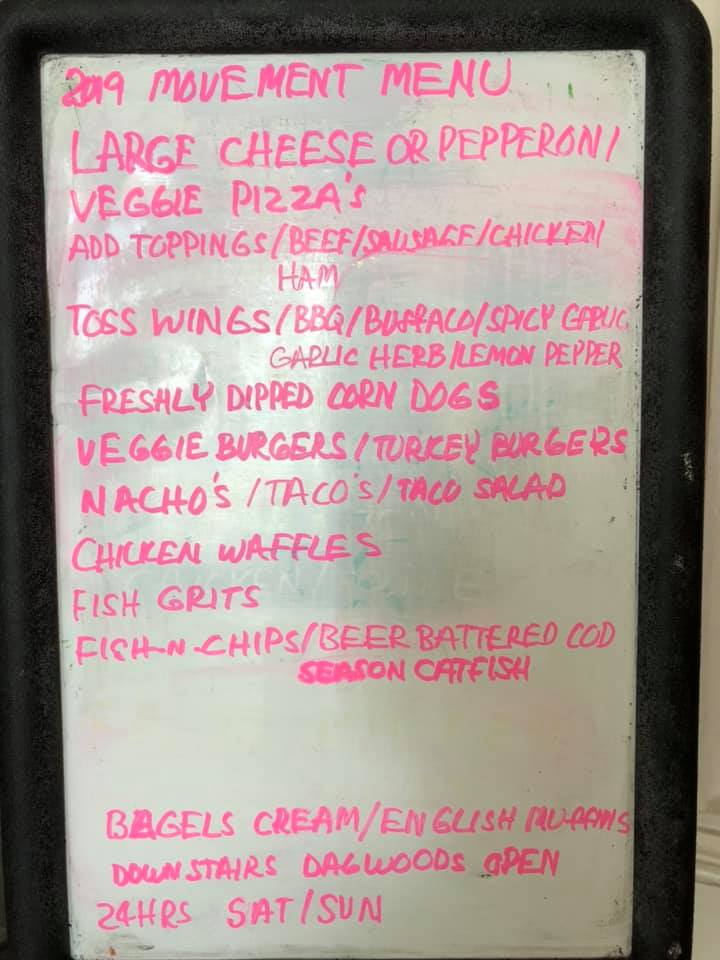 2019 MOVEMENT MENU
LARGE CHEESE OR PEPPERONI/
VEGGIE PIZZA'S
ADD TOPPINGS/BEEF/SAUSAGE/CHICKEN/
HAM
TOSS WINGS/BBQ/BUFFALO/SPICY GARLIC
GARLIC HERB/LEMON PEPPER
FRESHLY DIPPED CORN DOGS
VEGGIE BURGERS/TURKEY BURGERS
NACHO'S/TACO'S/TACO SALAD
CHICKEN WAFFLES
FISH GRITS
FISH-N-CHIPS/BEER BATTERED COD
SEASON CATFISH
BAGELS CREAM/ENGLISH MUFFINS
DOWNSTAIRS DAGWOODS OPEN
24HRS SAT/SUN